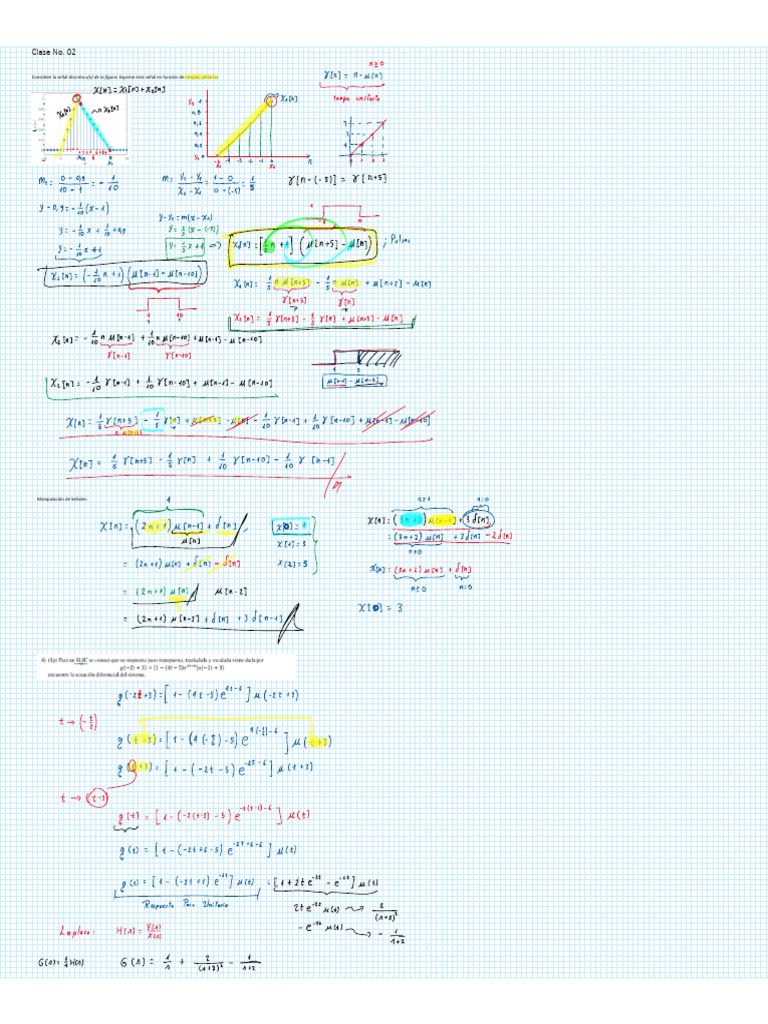 Clase No. 02
Considere la señal discreta x[n] de la figura. Exprese esta señal en función de rampas unitarias
x[n] = x₁[n] + x₂[n]
n≥0
γ[n] = n · μ[n]
rampa unitaria
x₁[n]
m₁ = (0 - 0,9)/(10 - 1) = - 1/10
m = (y₂ - y₁)/(x₂ - x₁) = (1 - 0)/(0 - (-5)) = 1/5
γ[n - (-5)] = γ[n+5]
y - 0,9 = - 1/10 (x - 1)
y = - 1/10 x + 1/10 + 0,9
y = - 1/10 x + 1
y - y₁ = m(x - x₁)
y = 1/5 (x - (-5))
y = 1/5 x + 1 ⇒
x₁[n] = [1/5 n + 1] (μ[n+5] - μ[n]) ; Pulsos
x₂[n] = (- 1/10 n + 1) (μ[n-1] - μ[n-10])
x₁[n] = 1/5 n μ[n+5] - 1/5 n μ[n] + μ[n+5] - μ[n]
γ[n+5] γ[n]
1 10
x₁[n] = 1/5 γ[n+5] - 1/5 γ[n] + μ[n+5] - μ[n]
x₂[n] = - 1/10 n μ[n-1] + 1/10 n μ[n-10] + μ[n-1] - μ[n-10]
γ[n-1] γ[n-10]
1 2
μ[n-1] - μ[n-2]
x₂[n] = - 1/10 γ[n-1] + 1/10 γ[n-10] + μ[n-1] - μ[n-10]
x[n] = 1/5 γ[n+5] - 1/5 γ[n] + μ[n+5] - μ[n] - 1/10 γ[n-1] + 1/10 γ[n-10] + μ[n-1] - μ[n-10]
n μ[n+5]
x[n] = 1/5 γ[n+5] - 1/5 γ[n] + 1/10 γ[n-10] - 1/10 γ[n-1]
Manipulación de señales.
1
x[n] = (2n+1) μ[n-1] + δ[n]
μ[n]
x[0] = 1
x[1] = 3
x[2] = 5
= (2n+1) μ[n] + δ[n] - δ[n]
= (2n+1) μ[n] μ[n-2]
= (2n+1) μ[n-2] + δ[n] + 3 δ[n-1]
n≥1 n=0
x[n] = (3n+2) μ[n-1] + 3 δ[n]
= (3n+2) μ[n] + 3δ[n] - 2δ[n]
n=0
x[n] = (3n+2) μ[n] + δ[n]
n≥0 n=0
x[0] = 3
4) (3p) Para un SLIC se conoce que su respuesta paso transpuesta, trasladada y escalada viene dada por
g(-2t + 3) = [1 - (4t - 5)e^(4t-6)]u(-2t + 3)
encuentre la ecuación diferencial del sistema.
g(-2t+3) = [1 - (4t-5) e^(4t-6)] μ(-2t+3)
t → (-t/2)
g(t+3) = [1 - (4(-t/2) - 5) e^(4(-t/2)-6)] μ(t+3)
g(t+3) = [1 - (-2t-5) e^(-2t-6)] μ(t+3)
t → (t-3)
g(t) = [1 - (-2(t-3) - 5) e^(-2(t-3)-6)] μ(t)
g(t) = [1 - (-2t+6-5) e^(-2t+6-6)] μ(t)
g(t) = [1 - (-2t+1) e^(-2t)] μ(t) = [1 + 2t e^(-2t) - e^(-2t)] μ(t)
Respuesta Paso Unitario
2t e^(-2t) μ(t) → 2/(s+2)²
- e^(-2t) μ(t) → - 1/(s+2)
Laplace: H(s) = Y(s)/X(s)
G(s) = 1/s H(s)
G(s) = 1/s + 2/(s+2)² - 1/(s+2)